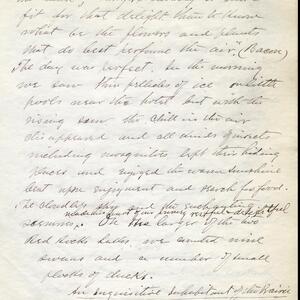 fit for that delight than to know
what be the flowers and plants
that do best perfume the air. (Bacon)
The day was perfect. In the morning
we saw thin pellicles of ice on little
pools near the hotel but with the
rising sun the chill in the air
disappeared and all kinds of insects
including mosquitoes left their hiding
places and enjoyed the warm sunshine
bent upon enjoyment and search for food.
The cloudless sky and the
of our journey restful delightful
scenery. On the larger of the two
Red Rocks Lakes, we counted nine
swans and a number of small
flocks of ducks.
An inquisitive inhabitant of the Prairie